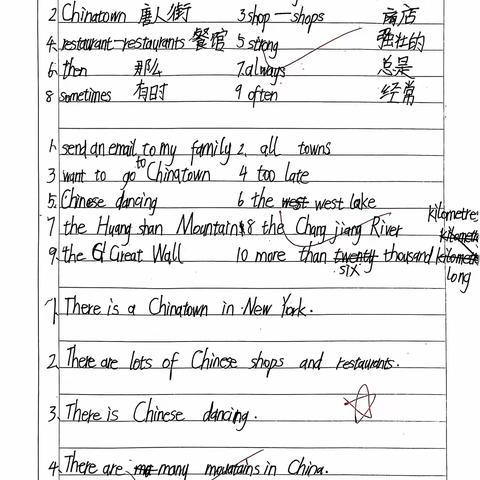 2 Chinatown 唐人街 3 shop—shops 商店
4. restaurant-restaurants 餐馆 5 strong 强壮的
6. then 那么 7. always 总是
8 sometimes 有时 9 often 经常
1. send an email to my family 2. all towns
3 want to go to Chinatown 4 too late
5. Chinese dancing 6 the west lake
7 the Huang shan Mountains 8 the Chang jiang River
9. the Great Wall 10 more than six thousand kilometres long
1. There is a Chinatown in New York.
2. There are lots of Chinese shops and restaurants.
3. There is Chinese dancing.
4. There are many mountains in China.